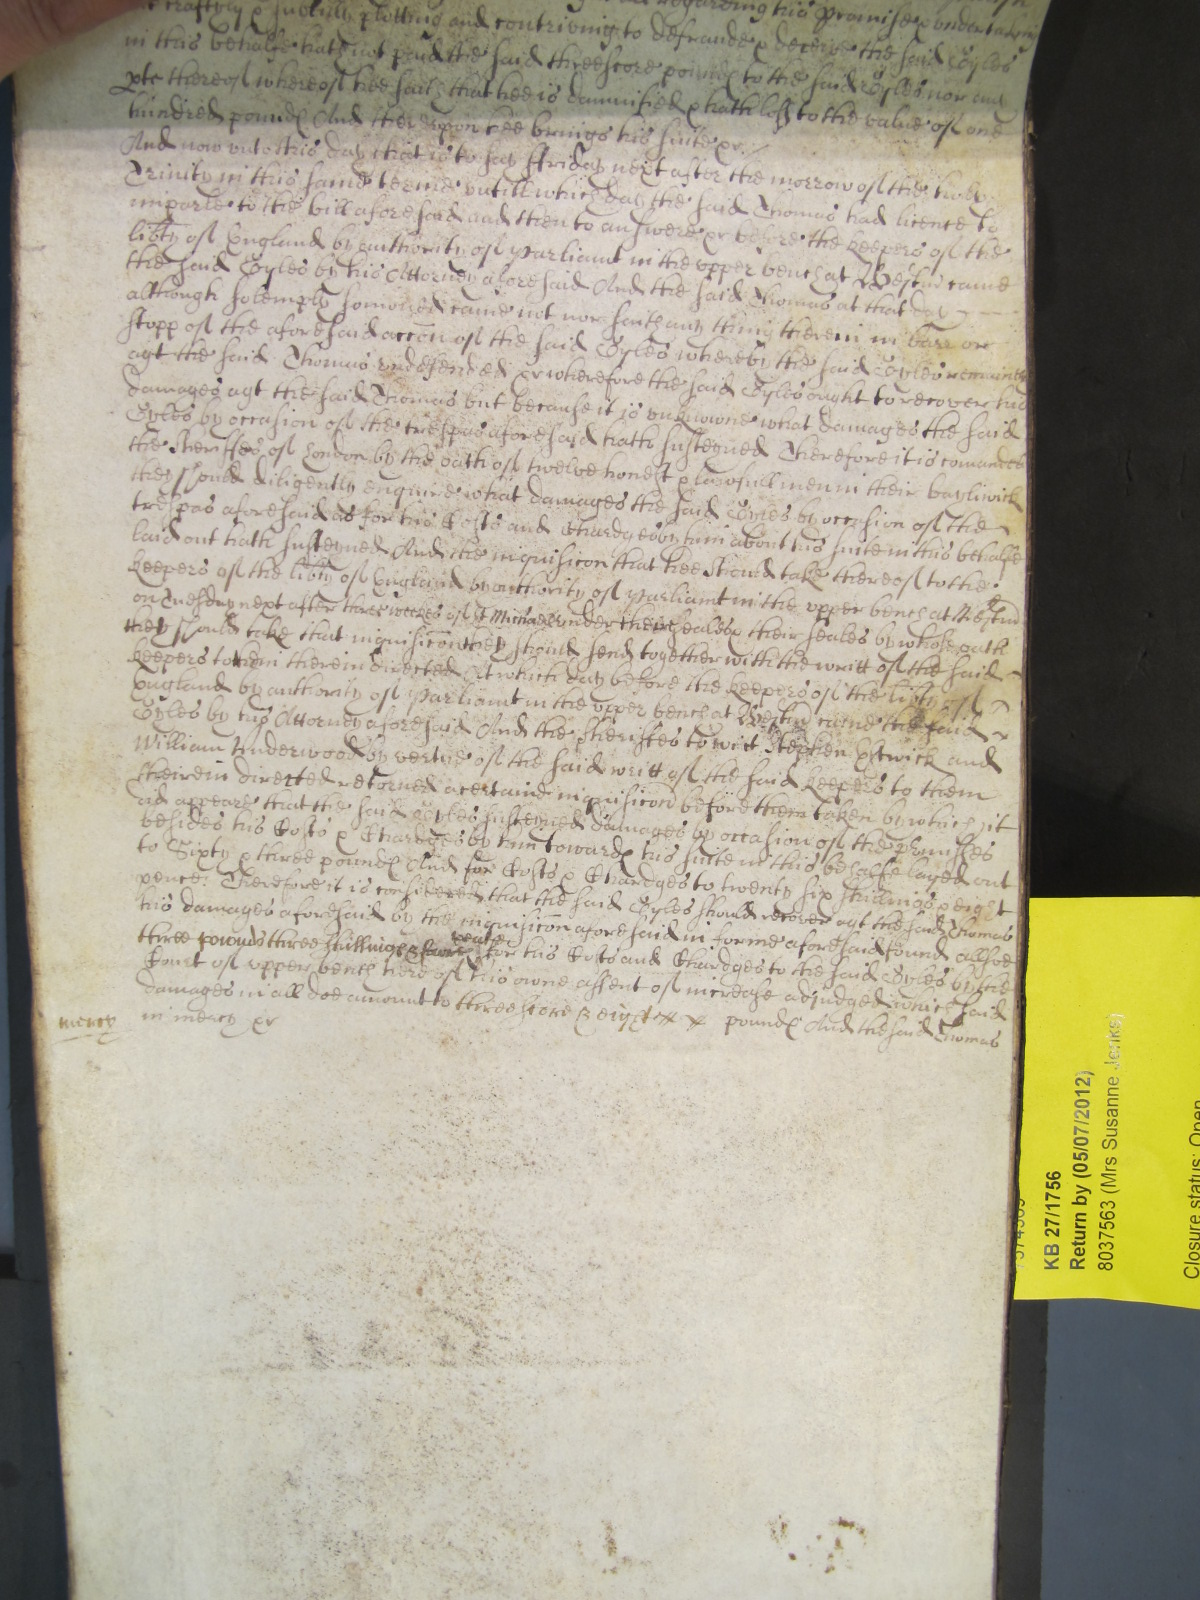 regarding his promise & undertaking
craftyly & subtilly plotting and contriving to defraude & deceive the said Gyles
in this behalfe hath not paid the said threescore pound to the said Gyles nor any
pte thereof whereof hee saith that hee is damnified & hath losse to the value of one
hundred pound And thereupon hee brings his suite &c
And now unto this day that is to say ffriday next after the morrow of the holy
Trinity in this same terme untill which day the said Thomas had licence to
imparle to the bill aforesaid and then to answere &c before the keepers of the
libty of England by authority of Parliamt in the upper bench at Westm came
the said Gyles by his Attorney aforesaid And the said Thomas at that day
although solemply somoned came not nor saith any thing therein in barr or
stopp of the aforesaid accon of the said Gyles whereby the said Gyles remaines
agt the said Thomas undefended &c wherefore the said Gyles ought to recover his
damages agt the said Thomas but because it is unknowne what damages the said
Gyles by occasion of the trespas aforesaid hath susteyned Therefore it is comanded
the Sheriffes of London by the oath of twelve honest & lawfull men in their bayliwick
they should diligently enquire what damages the said Gyles by occasion of the
trespas aforesaid as for his Costs and Chardges by him about his suite in this behalfe
laid out hath susteyned And the inquisicon that hee should take thereof to the
keepers of the libty of England by authority of Parliamt in the upper bench at Westm
on Tuesday next after three weekes of St Michael under their seales & their seales by whose oath
they should take that inquisicon they should send together with the writt of the said
keepers to them therein directed At which day before the keepers of the libty of
England by authority of Parliamt in the upper bench at Westm came the said
Gyles by his Attorney aforesaid And the Sheriffes to wit Stephen Estwick and
William Underwood by vertue of the said writt of the said keepers to them
therein directed returned a certaine inquisicon before them taken by which it
did appeare that the said Gyles susteyned damages by occasion of the pmisses
besides his Costs & Chardges by him toward his suite in this behalfe layed out
to Sixty & three pound And for Costs & Chardges to twenty six shillings & eight
pence Therefore it is considered that the said Gyles should recover agt the said Thomas
his damages aforesaid by the inquisicon aforesaid in forme aforesaid found allsoe
three pounds three shillings & foure pence for his Costs and Chardges to the said Gyles by the
Court of upper bench here of his owne assent of increase adjudged which said
damages in all doe amount to threescore & eight pound And the said Thomas
mercy in mercy &c
KB 27/1756
Return by (05/07/2012)
8037563 (Mrs Susanne Jenks)
Closure status: Open